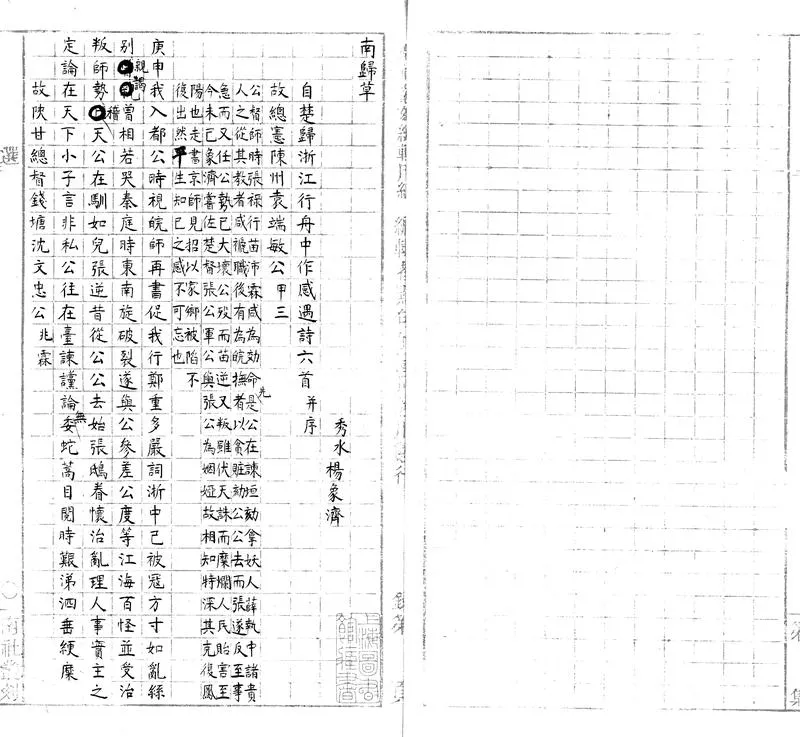 南歸草
秀水楊象濟
自楚歸浙江行舟中作感遇詩六首并序
故總憲陳州袁端敏公甲三
公督師時張祿行苗沛霖咸為効命先是公在諫垣劾拿妖人薛執中諸貴
人之從其教者咸褫職後有為皖撫者以貪賍劾公公去而張遂反至事
急而又任公勢已大壞公歿而苗逆又叛雖伏天誅而糜爛人民貽害至
今未已象濟嘗佐楚督張公軍公與張公為姻婭故相知特深其克復鳳
陽也走書京師見招以家鄉被陷不
復出然平生知己之感不可忘也
庚申我入都公時視皖師再書促我行鄭重多嚴詞浙中已被寇方寸如亂絲
別親謁曾相若哭秦庭時東南旋破裂遂與公參差公度等江海百怪並受治
叛師勢稽天公在馴如兒張逆昔從公公去始張鴟眷懷治亂理人事實主之
定論在天下小子言非私公往在臺諫讜論無委蛇蒿目閱時艱涕泗垂綆縻
故陝甘總督錢塘沈文忠公兆霖
選
南社叢刻
集
上海圖書館藏書